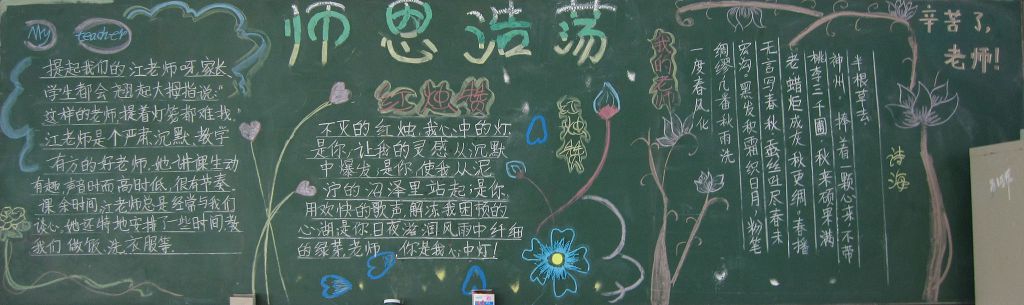 师恩浩荡
My teacher
提起我们的江老师呀,家长
学生都会翘起大拇指说:"
这样的老师,提着灯笼都难找"
江老师是个严肃,沉默,教学
有方的好老师,她讲课生动
有趣,声音时而高时低,很有节奏.
课余时间,江老师总是经常与我们
谈心,她还特地安排了一些时间教
我们做饭,洗衣服等
红烛赞
不灭的红烛,我心中的灯
是你,让我的灵感从沉默
中爆发,是你,使我从泥
泞的沼泽里站起;是你,
用欢快的歌声解冻我困顿的
心湖;是你日夜滋润风雨中纤细
的绿芽,老师,你是我心中灯!
红烛赞
我的老师
一度春风化
绸缪几番秋雨洗
宏沟,黑发秋霜织日月,粉笔
无言写春秋,蚕丝迅尽春未
老,蜡炬成灰秋更绸,春播
桃李三千圃,秋来硕果满
神州,捧着一颗心来,不带
半根草去
诗海
辛苦了,
老师!